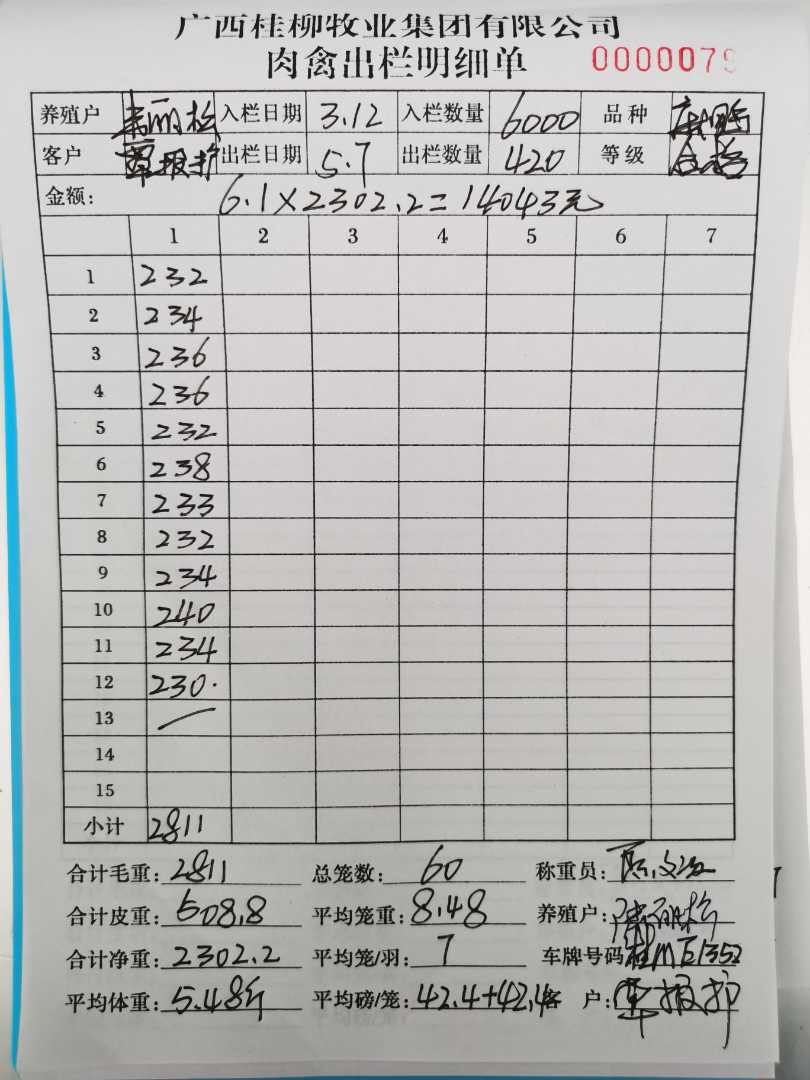 广西桂柳牧业集团有限公司
肉禽出栏明细单 000007
养殖户 丽松 入栏日期 3.12 入栏数量 6000 品种
客户 覃报护 出栏日期 5.7 出栏数量 420 等级 合格
金额: 6.1×2302.2=14043元
1 2 3 4 5 6 7
1 232
2 234
3 236
4 236
5 232
6 238
7 233
8 232
9 234
10 240
11 234
12 230.
13 —
14
15
小计 2811
合计毛重: 2811 总笼数: 60 称重员:
合计皮重: 508.8 平均笼重: 8.48 养殖户: 丽松
合计净重: 2302.2 平均笼/羽: 7 车牌号码 桂ME1352
平均体重: 5.48斤 平均磅/笼: 42.4+42.4 客户: 覃报护